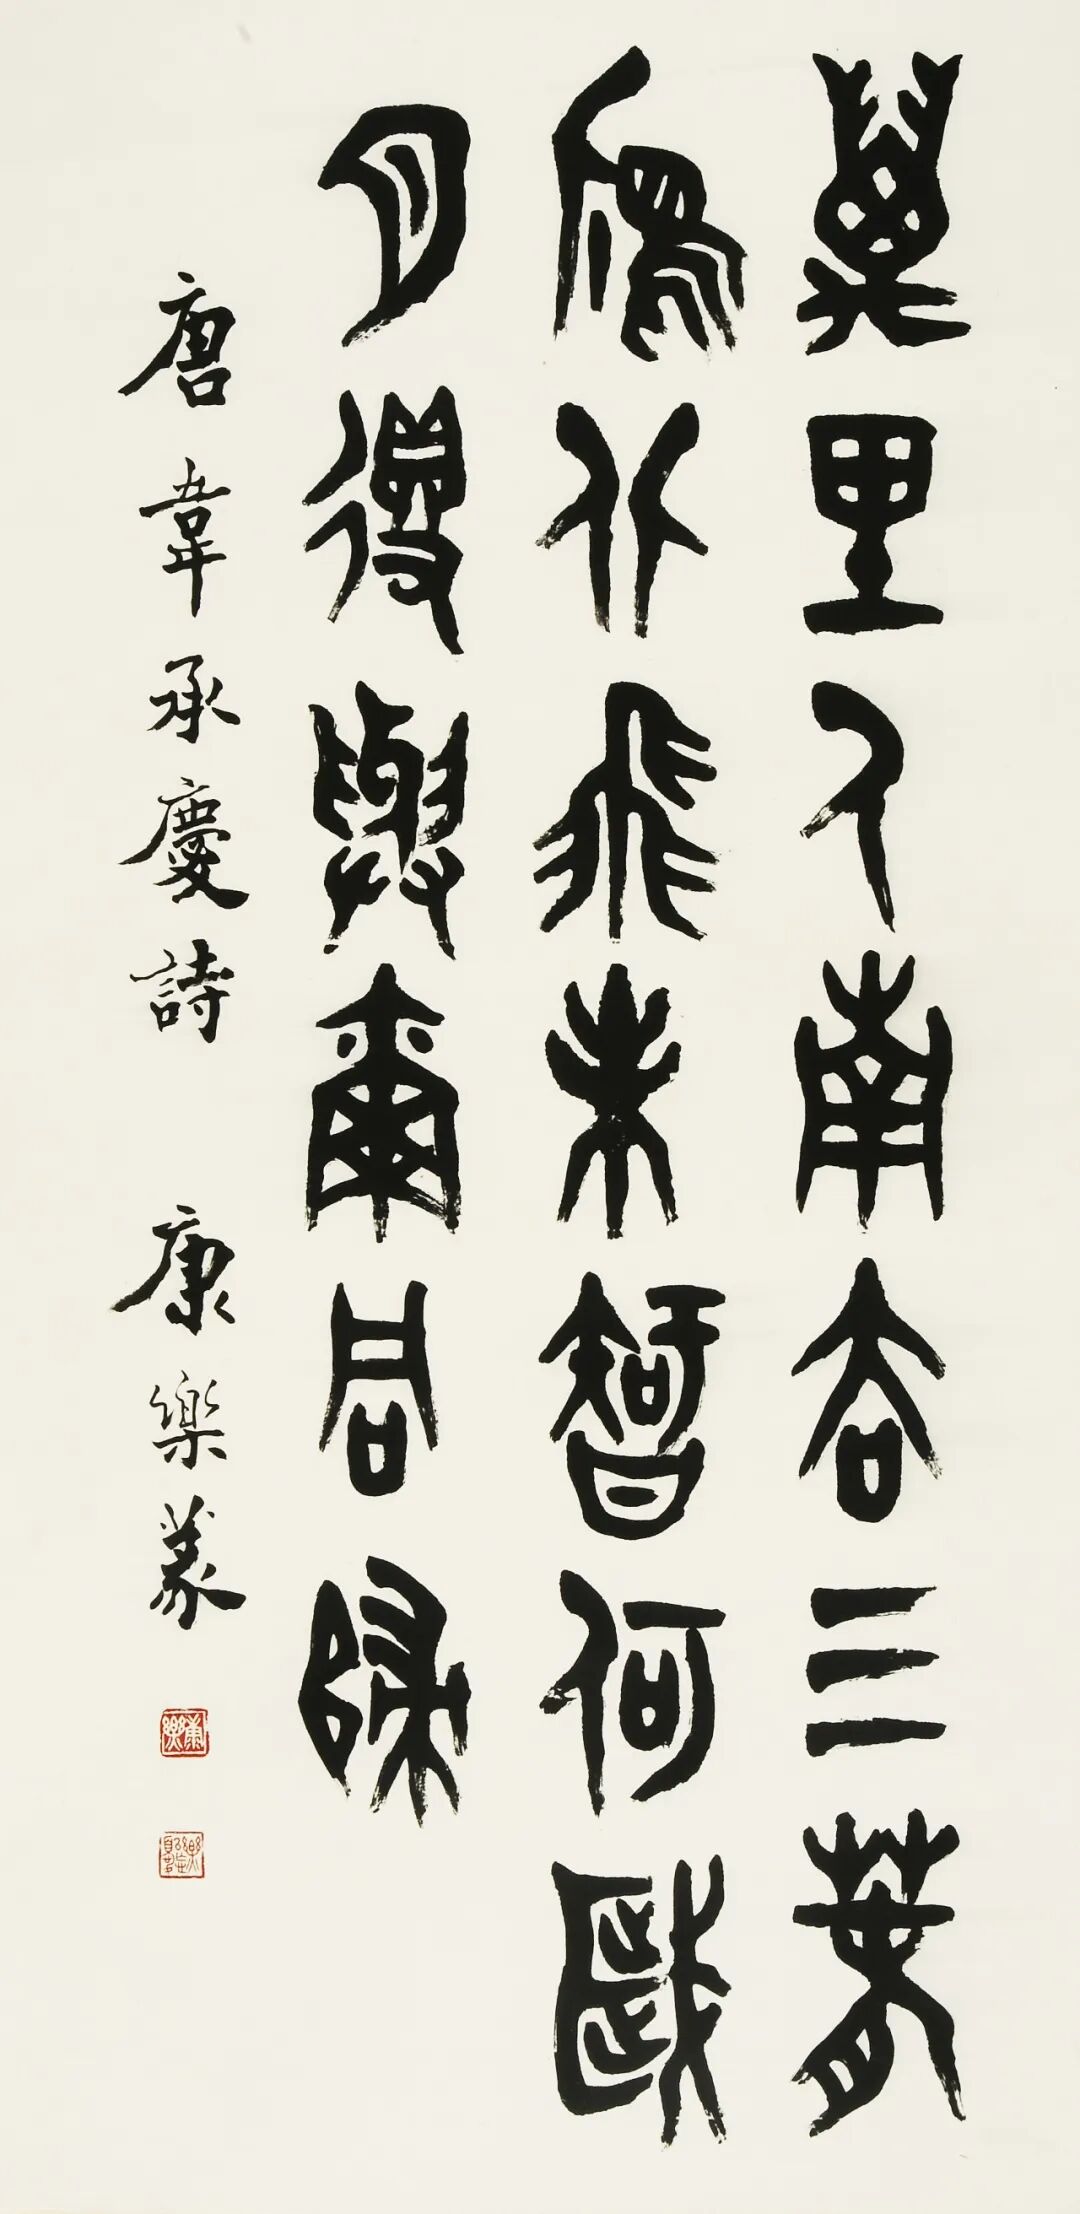 萬里人南去三春
雁北飛未智何歲
月得與爾同歸
唐韋承慶詩 康樂篆
康樂